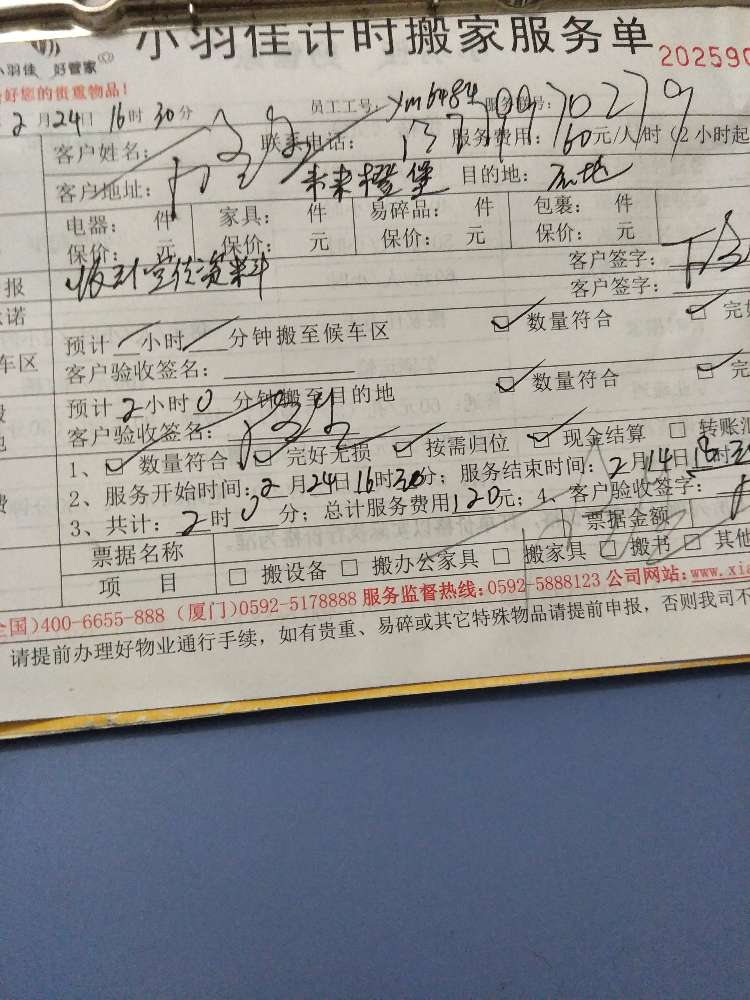 小羽佳计时搬家服务单
小羽佳 好管家
202590
好您的贵重物品！
2月24日16时30分 员工工号：xm6484 服务 号：
客户姓名： 联系电话：13799970279 服务费用：60元/人/时（2小时起
客户地址： 未来橙堡 目的地：
电器： 件 家具： 件 易碎品： 件 包裹： 件
保价： 元 保价： 元 保价： 元 保价： 元
报 收到宣传资料 客户签字：
客户签字：
诺
车区 预计 小时 分钟搬至候车区 数量符合 完好
客户验收签名：
预计2小时0分钟搬至目的地 数量符合 完
地 客户验收签名：
1、数量符合 完好无损 按需归位 现金结算 转账汇
2、服务开始时间：2月24日16时30分；服务结束时间：2月14日18时3
费 3、共计：2时0分；总计服务费用120元；4、客户验收签字：
票据名称 票据金额
项 目 □ 搬设备 □ 搬办公家具 □ 搬家具 □ 搬书 □ 其他
全国)400-6655-888 (厦门)0592-5178888 服务监督热线:0592-5888123 公司网站:www.xia
请提前办理好物业通行手续，如有贵重、易碎或其它特殊物品请提前申报，否则我司不